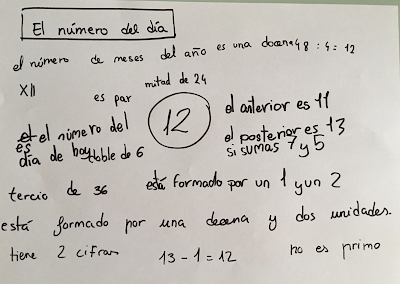 El número del día
el número de meses del año es una docena
48 : 4 = 12
XII
es par
mitad de 24
12
el anterior es 11
es el número del
día de hoy
doble de 6
el posterior es 13
si sumas 7 y 5
tercio de 36
está formado por un 1 y un 2
está formado por una decena y dos unidades.
tiene 2 cifras
13 - 1 = 12
no es primo